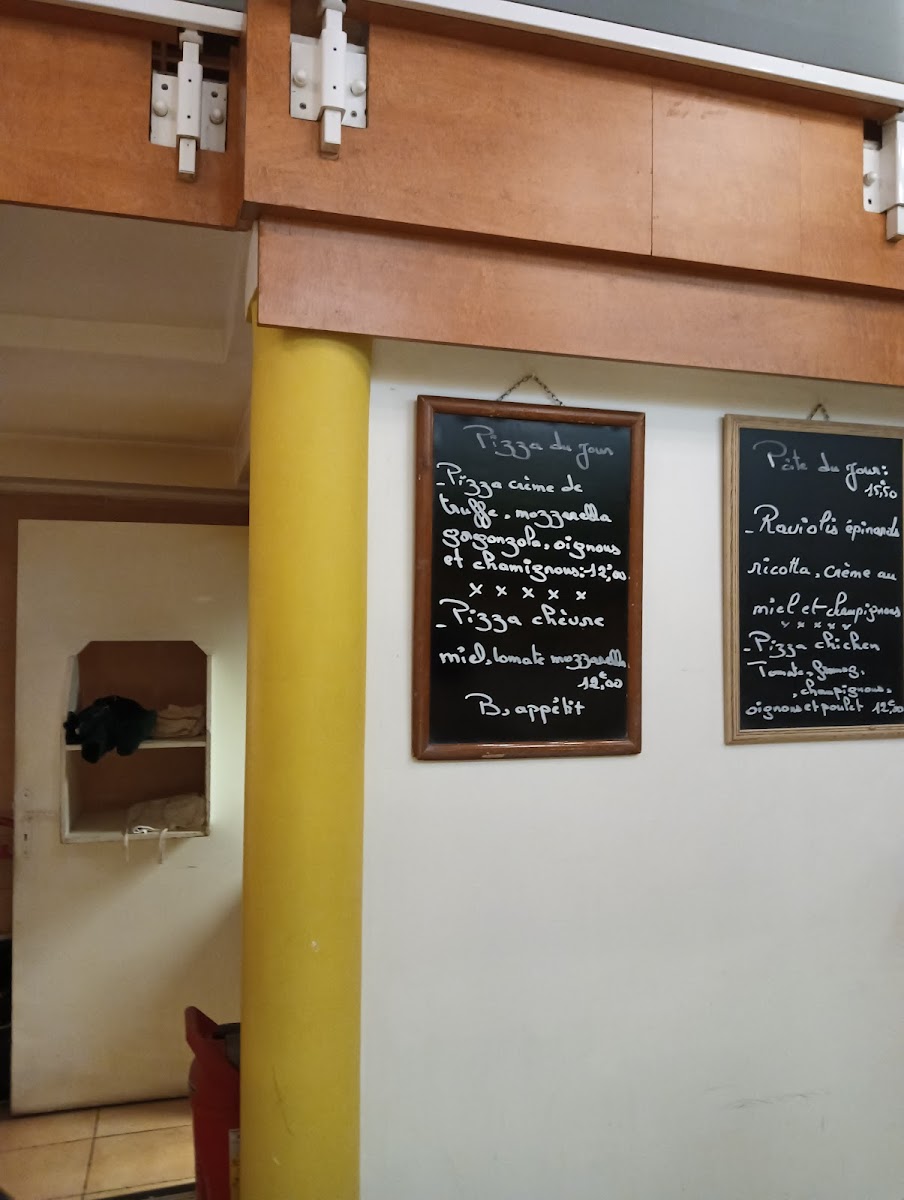 Pizza du jour
- Pizza crème de
truffe, mozzarella
gorgonzola, oignons
et chamignons: 12€,00
x x x x x
- Pizza chèvre
miel, tomate mozzarella
12€,00
B, appétit
Pâte du jour:
15€,50
- Raviolis épinards
ricotta, crème au
miel et champignons
x x x x x
- Pizza chicken
Tomate,
, champignons,
oignons et poulet 12€,00